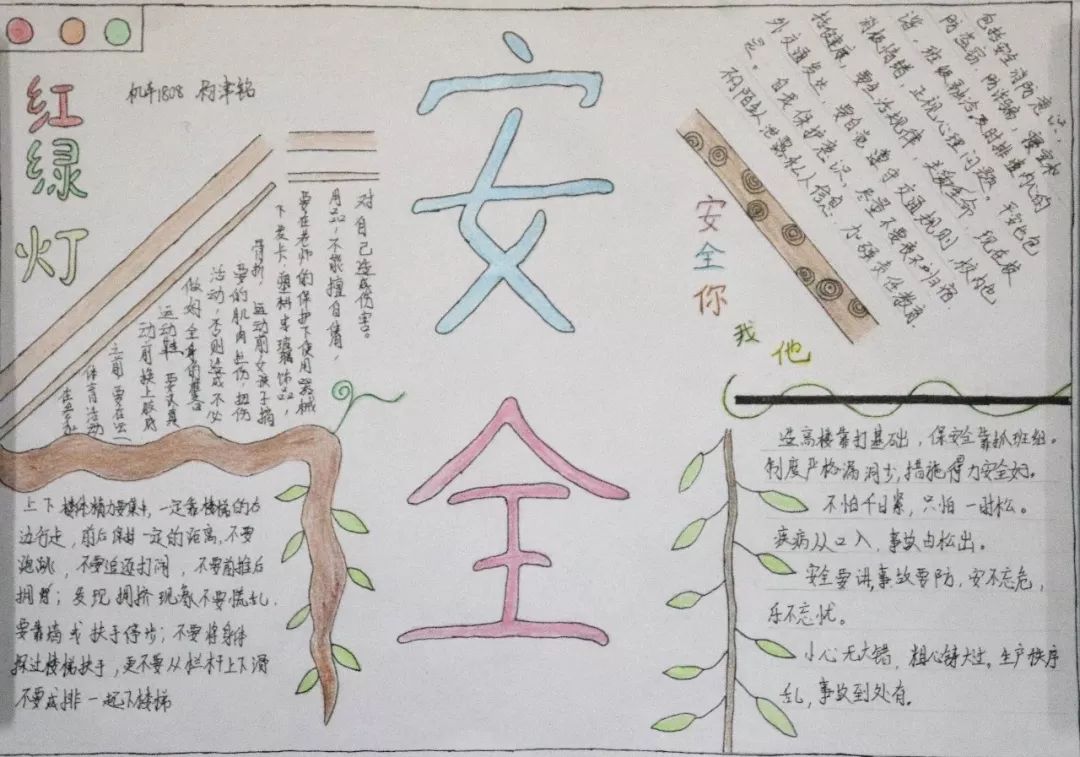 红
绿
灯
机车1808
安
全
安
全
你
我
他
对自己造成伤害。
用品,不能擅自借,
要在老师的保护下使用器械
下发卡,塑料玻璃饰品,
骨折,运动前女孩子摘
要的肌肉拉伤,扭伤
活动,否则造成不必
做好全身的
运动鞋,要认真
动前换上胶底
之前要在运
体育活动
在参加
包括安全消防意识,
防盗窃,防诈骗,
班级
消极情绪,正视心理问题。平安
持健康,要生活规律,关爱生命,现在校
外交通发达,要自觉遵守交通规则,校内
足。自我保护意识,尽量不要夜不归宿
泄露私人信息,加强责任教育.
上下楼梯精力要集中,一定靠楼梯的右
边行走,前后保持一定的距离,不要
跑跳,不要追逐打闹,不要前推后
拥挤;发现拥挤现象不要慌乱.
要靠墙或扶手停步;不要将身体
探过楼梯扶手,更不要从栏杆上下滑
不要成排一起下楼梯
造高楼靠打基础,保安全靠抓班组。
制度严格漏洞少,措施得力安全好。
不怕千日紧,只怕一时松。
疾病从口入,事故由松出。
安全要讲,事故要防,安不忘危,
乐不忘忧。
小心无大错,粗心铸大过,生产秩序
乱,事故到处有。